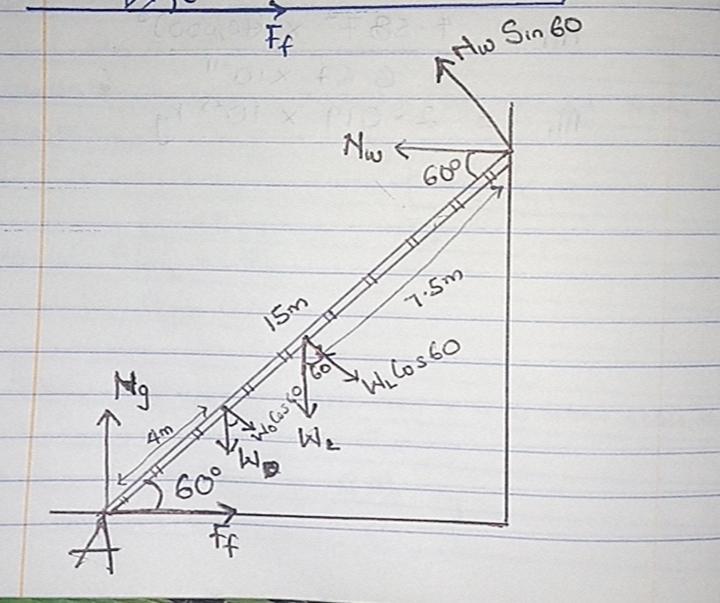 F_f
N_w Sin 60
N_w
60°
7.5m
15m
60
W_L Cos 60
W_L
N_g
4m
W_D Cos 60
W_D
60°
F_f
A